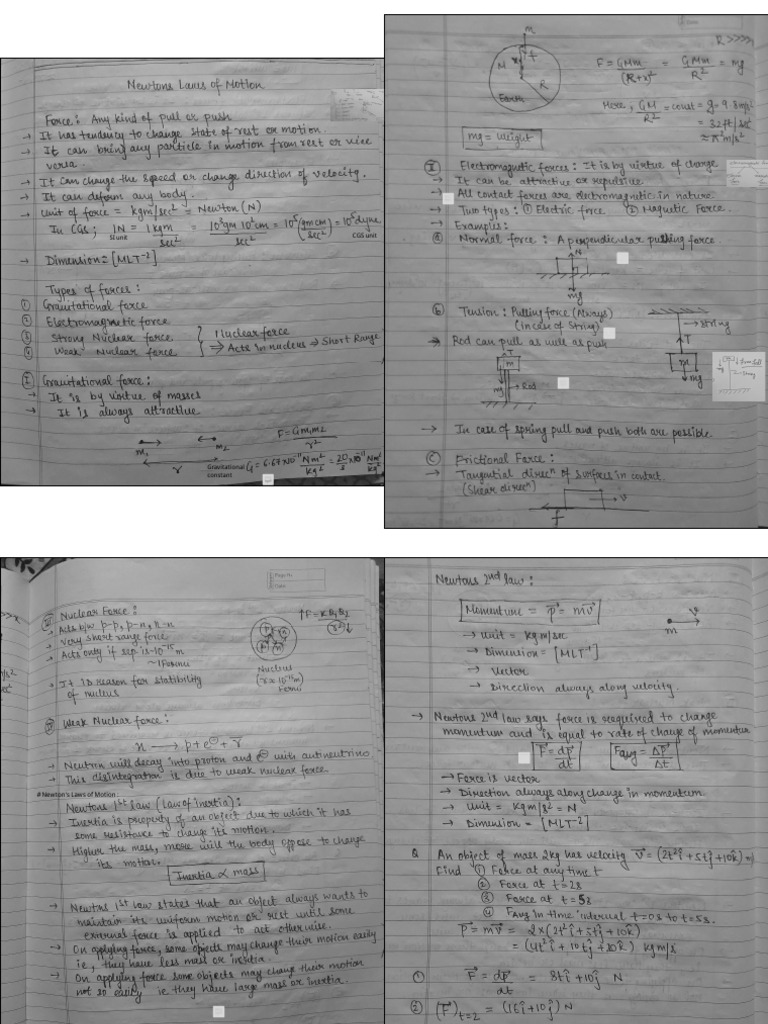 Newtons Laws of Motion
Force: Any kind of pull or push
→ It has tendency to change state of rest or motion.
→ It can bring any particle in motion from rest or vice
versa.
→ It can change the speed or change direction of velocity.
→ It can deform any body.
→ Unit of force = kgm/sec² = Newton (N)
In CGS; 1N = 1 kgm/sec² = 10³gm 10²cm/sec² = 10⁵(gmcm/sec²) = 10⁵dyne
SI unit CGS unit
→ Dimension = [MLT⁻²]
Types of forces:
① Gravitational force
② Electromagnetic force
③ Strong Nuclear force } Nuclear force
④ Weak Nuclear force ⇒ Acts in nucleus → Short Range
Ⅰ Gravitational force:
→ It is by virtue of masses
→ It is always attractive
m₁ m₂ r
F = Gm₁m₂/r²
Gravitational constant G = 6.67×10⁻¹¹ Nm²/kg² = 20/3 ×10⁻¹¹ Nm²/kg²
m
R >>>>
R
Earth
F = GMm/(R+x)² = GMm/R² = mg
Here, GM/R² = const = g = 9.8m/s²
= 32ft/sec²
≈ π²m/s²
mg = weight
Ⅱ Electromagnetic forces: It is by virtue of charge
→ It can be attractive or repulsive
→ All contact forces are electromagnetic in nature
→ Two types: ① Electric force ② Magnetic Force.
→ Examples:
ⓐ Normal force: A perpendicular pushing force
N
mg
ⓑ Tension: Pulling force (Always)
(In case of String)
→ string
T
m
mg
→ Rod can pull as well as push
T
m
mg
→ Rod
→ In case of spring pull and push both are possible.
ⓒ Frictional Force:
→ Tangential direcⁿ of surfaces in contact.
(Shear direcⁿ)
v
f
Page No.
Date
Ⅲ Nuclear Force:
→ Acts b/w p-p, p-n, n-n
→ Very short range force
→ Acts only if sep. is ~10⁻¹⁵m
~1 Fermi
→ It is reason for statibility
of nucleus
Nucleus
(r ≈ 10⁻¹⁵m)
Fermi
Ⅳ Weak Nuclear force:
n → p + e⊖ + v̄
→ Neutron will decay into proton and e⊖ with antineutrino
→ This disintegration is due to weak nuclear force.
# Newton's Laws of Motion:
Newtons 1st law (law of inertia):
→ Inertia is property of an object due to which it has
some resistance to change its motion.
→ Higher the mass, more will the body oppose to change
its motion.
Inertia ∝ mass
→ Newtons 1st law states that an object always wants to
maintain its uniform motion or rest until some
external force is applied to act otherwise.
→ On applying force, some objects may change their motion easily
ie, they have less mass or inertia.
→ On applying force some objects may change their motion
not so easily ie they have large mass or inertia.
Newtons 2nd law:
Momentum = p⃗ = mv⃗
m v⃗
→ Unit = kgm/sec
→ Dimension = [MLT⁻¹]
→ Vector
→ Direction always along velocity.
→ Newtons 2nd law says force is required to change
momentum and is equal to rate of change of momentum
F⃗ = dp⃗/dt F⃗avg = Δp⃗/Δt
→ Force is vector
→ Direction always along change in momentum.
→ Unit = kgm/s² = N
→ Dimension = [MLT⁻²]
Q An object of mass 2kg has velocity v⃗ = (2t²î + 5tĵ + 10k̂)
Find ① Force at any time t
② Force at t=2s
③ Force at t=5s
④ Favg in time interval t=0s to t=5s.
p⃗ = mv⃗ = 2×(2t²î + 5tĵ + 10k̂)
= (4t²î + 10tĵ + 20k̂) kgm/s
① F⃗ = dp⃗/dt = 8tî + 10ĵ N
② (F⃗)t=2 = (16î + 10ĵ) N